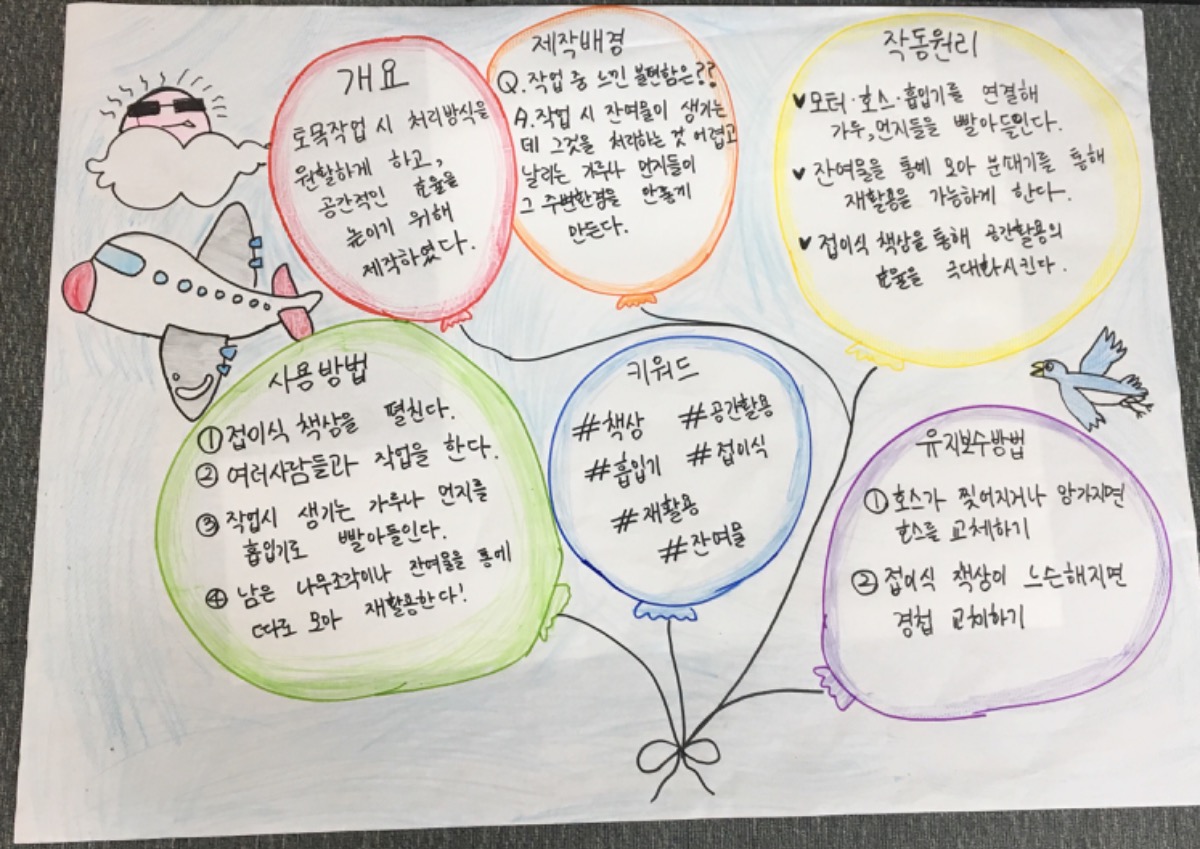 개요
토목작업 시 처리방식을
원할하게 하고,
공간적인 효율을
높이기 위해
제작하였다.
제작배경
Q. 작업 중 느낀 불편함은??
A. 작업 시 잔여물이 생기는
데 그것을 처리하는 것 어렵고
날리는 가루나 먼지들이
그 주변환경을 안좋게
만든다.
작동원리
✔ 모터·호스·흡입기를 연결해
가루,먼지들을 빨아들인다.
✔ 잔여물을 통에 모아 분쇄기를 통해
재활용을 가능하게 한다.
✔ 접이식 책상을 통해 공간활용의
효율을 극대화시킨다.
사용방법
① 접이식 책상을 펼친다.
② 여러사람들과 작업을 한다.
③ 작업시 생기는 가루나 먼지를
흡입기로 빨아들인다.
④ 남은 나무조각이나 잔여물을 통에
따로 모아 재활용한다!
키워드
#책상 #공간활용
#흡입기 #접이식
#재활용
#잔여물
유지보수방법
① 호스가 찢어지거나 망가지면
호스를 교체하기
② 접이식 책상이 느슨해지면
경첩 교체하기